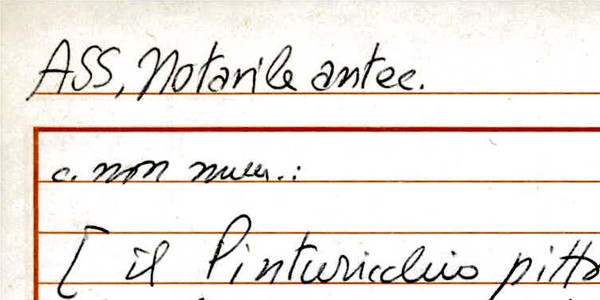 ASS, Notarile antec.
c. non num.:
[ il Pinturicchio pitto